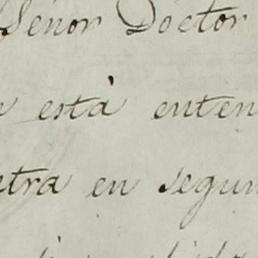 Señor Doctor
està enten
etra en segun